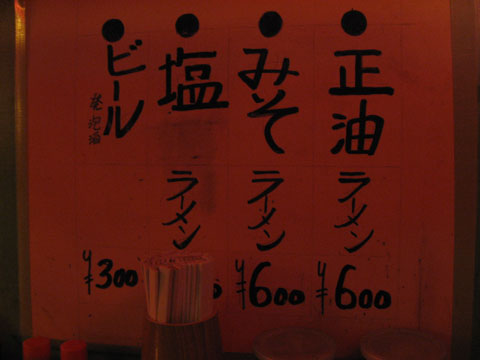 正油
ラーメン
¥600
みそ
ラーメン
¥600
塩
ラーメン
ビール
発泡酒
¥300